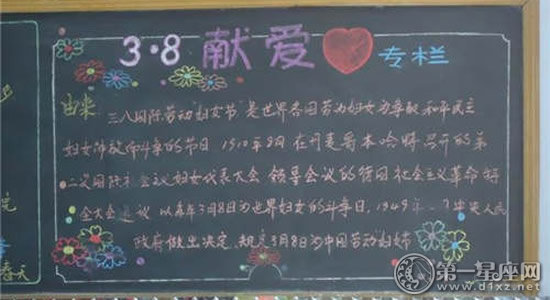 3·8 献爱 专栏
由来
三八国际劳动妇女节,是世界各国劳动妇女为争取和平民主
妇女解放而斗争的节日 1910年8月 在丹麦哥本哈根召开的第
二次国际社会主义妇女代表大会 领导会议的德国社会主义革命
会大会建议 以每年3月8日为世界妇女的斗争日,1949年 中央人民
政府做出决定,规定3月8日为中国劳动妇女节
春天
第一星座网
www.d1xz.net